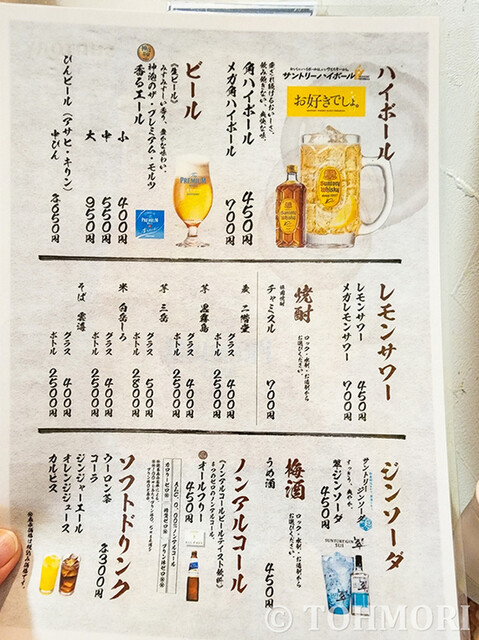 ハイボール
サントリーハイボール
お好きでしょ。
愛され続けるおいしさ。
飲み飽きない、爽快な味。
角ハイボール 450円
メガ角ハイボール 700円
ビール
(生ビール)
神泡のザ・プレミアム・モルツ
香るエール
小 400円
中 550円
大 950円
びんビール(アサヒ・キリン)
中びん 各650円
レモンサワー
レモンサワー 450円
メガレモンサワー 700円
焼酎
ロック・水割・お湯割から
お選びください。
韓国焼酎
チャミスル 700円
麦 二階堂
グラス 400円
ボトル 2500円
芋 黒霧島
グラス 400円
ボトル 2500円
芋 三岳
グラス 500円
ボトル 2800円
米 白岳しろ
グラス 400円
ボトル 2500円
そば 雲海
グラス 400円
ボトル 2500円
ジンソーダ
サントリージンソーダ
翠ジンソーダ
450円
SUNTORY GIN
SUI
梅酒
ロック・水割・お湯割から
お選びください。
うめ酒 450円
ノンアルコール
(ノンアルコールビールテイスト飲料)
オールフリー
450円
ソフトドリンク
各300円
ウーロン茶
コーラ
ジンジャーエール
オレンジジュース
カルピス
© TOHMORI